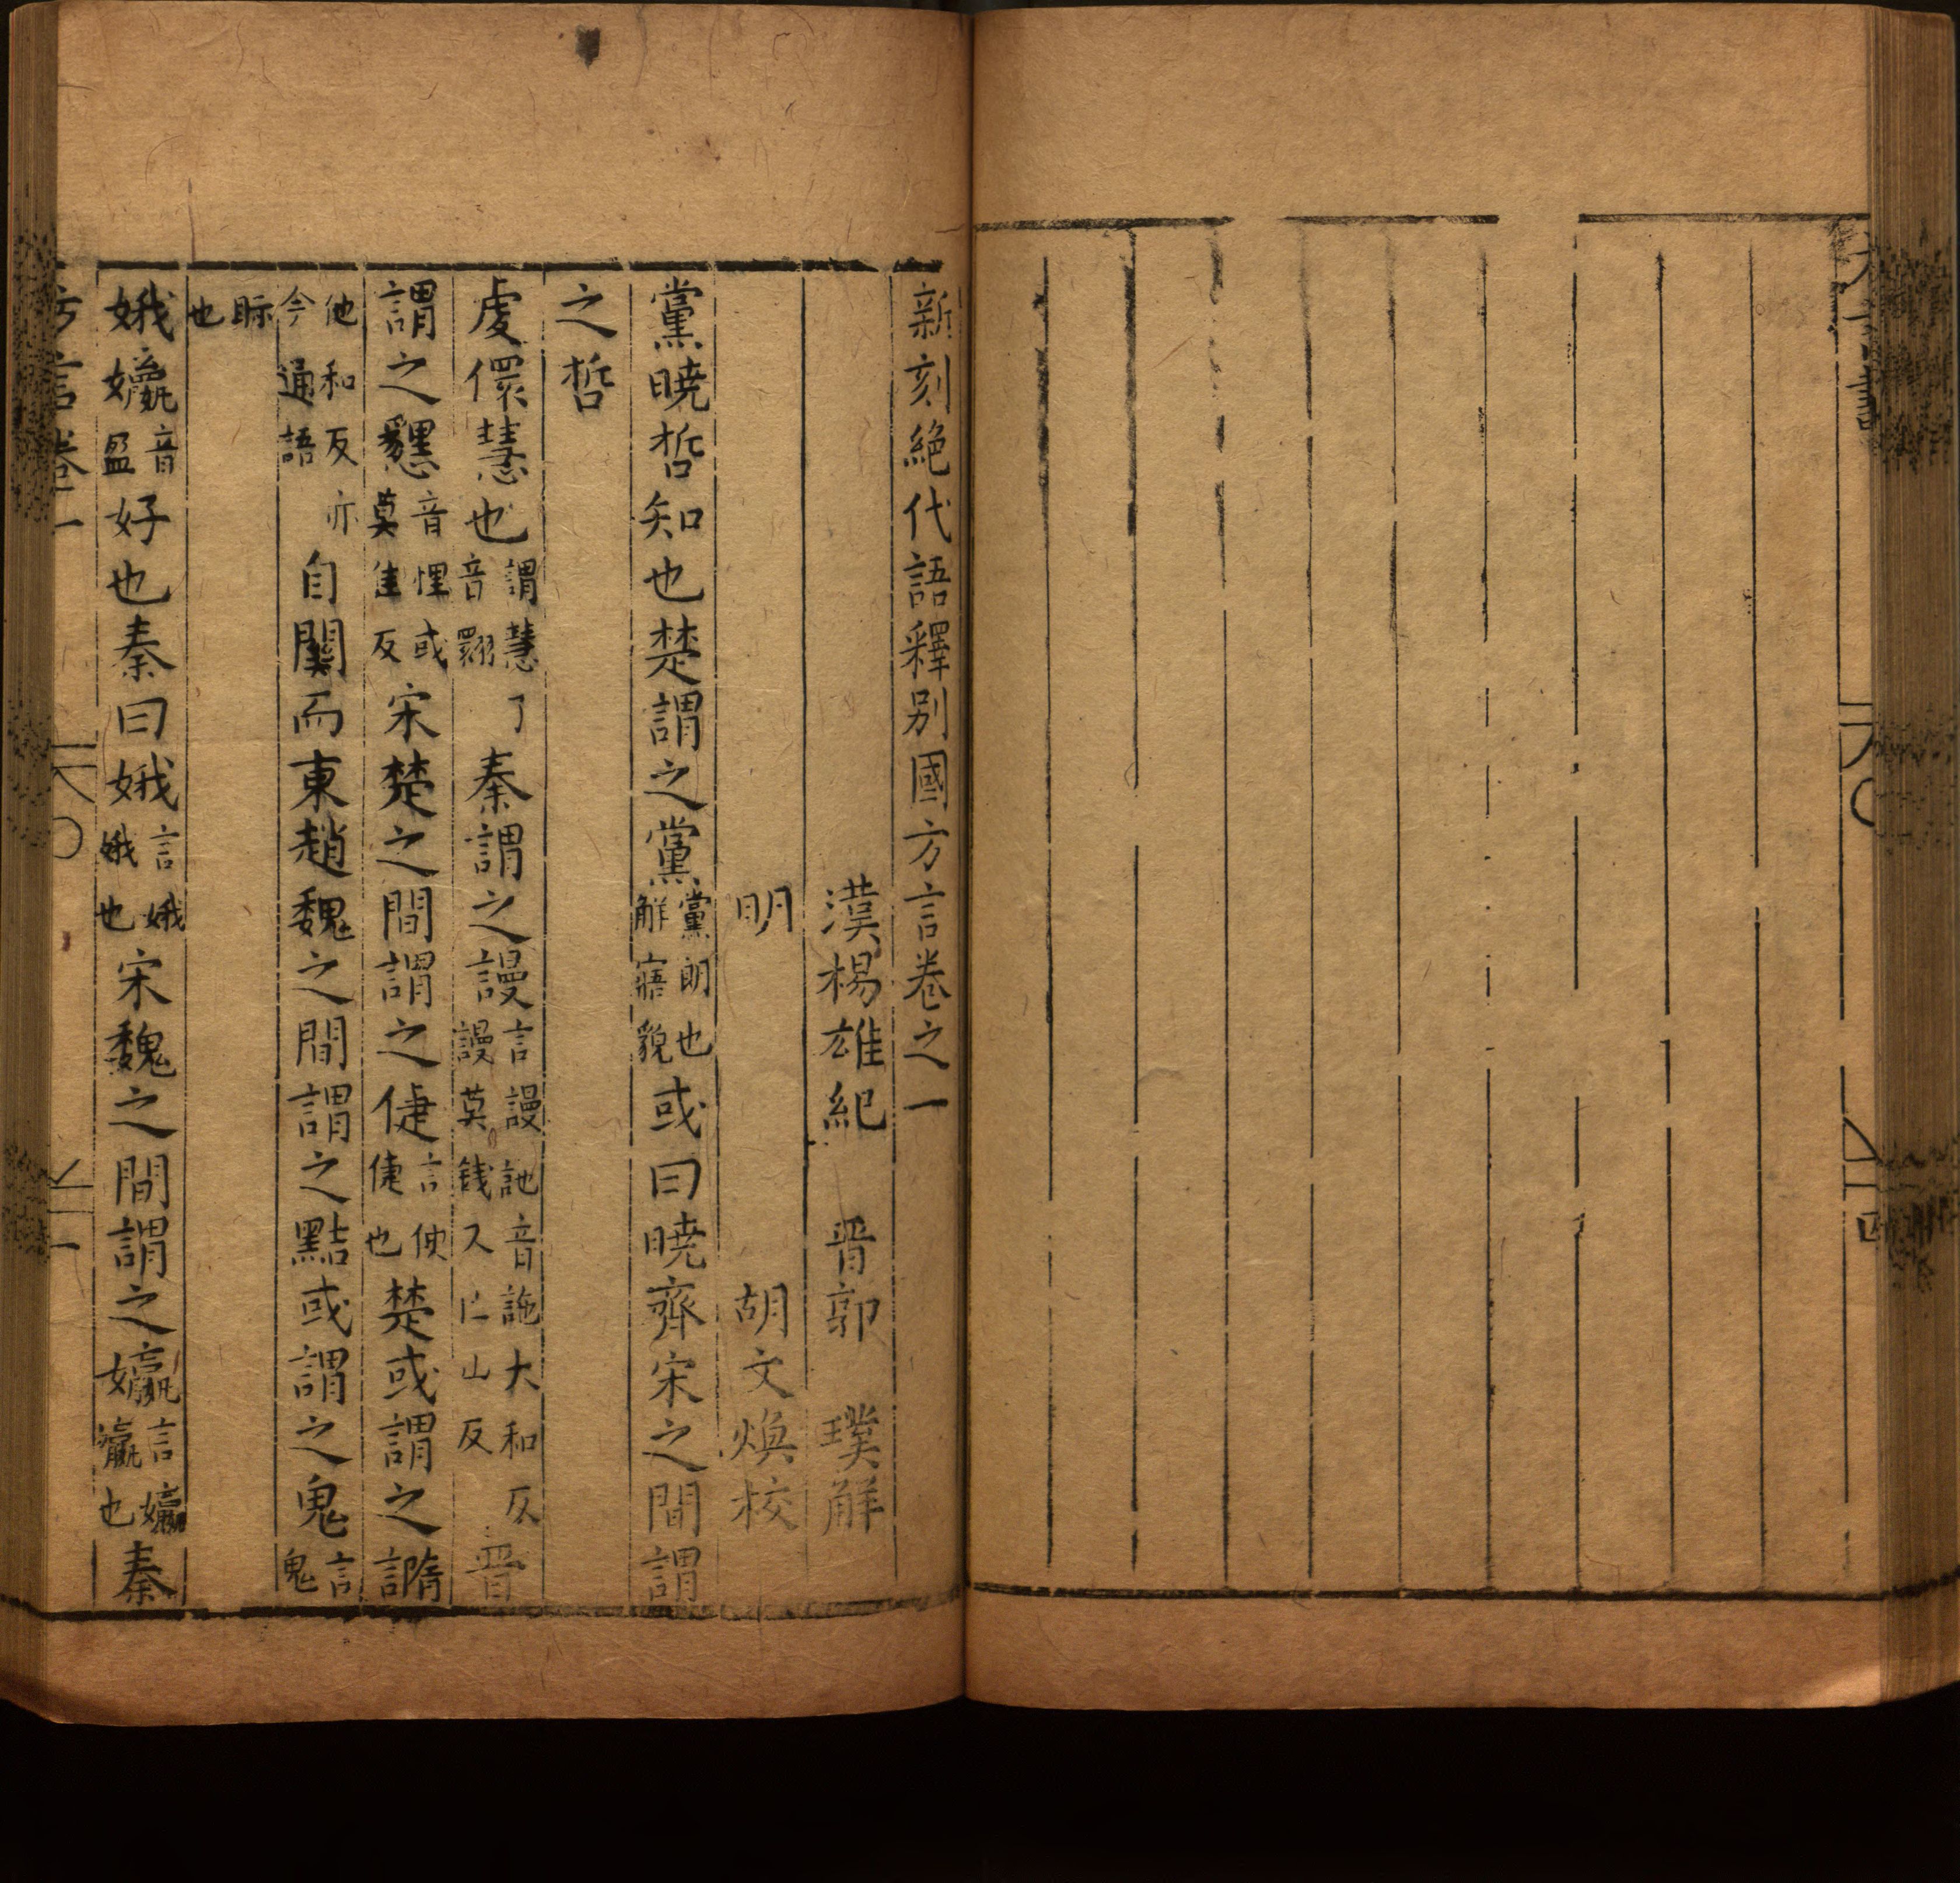 新刻絶代語釋别國方言卷之一
漢楊雄紀 晋郭 璞解
明 胡文煥校
黨曉哲知也楚謂之黨黨朗也解寤貌或曰曉齊宋之間謂
之哲
虔儇慧也謂慧了音翾秦謂之謾言謾訑音訑大和反謾莫錢又亡山反晋
謂之䫥音悝或莫佳反宋楚之間謂之倢言便倢也楚或謂之䜏
他和反亦今通語自関而東趙魏之間謂之黠或謂之鬼言鬼
眎也
娥㜲音盈好也秦曰娥言娥娥也宋魏之間謂之㜲言㜲㜲也秦
方言卷一
一
方言書
四